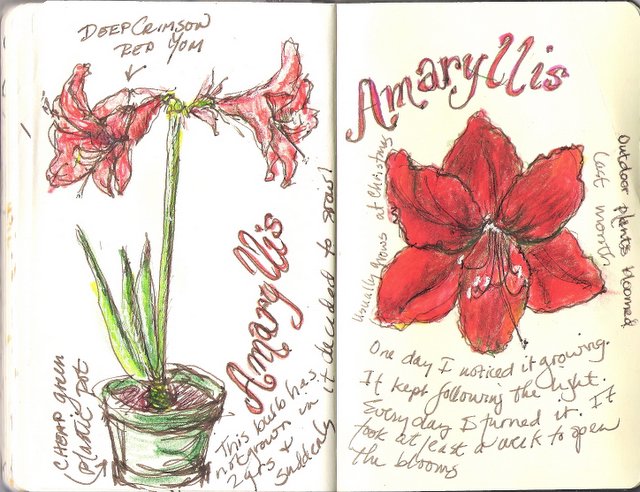 DEEP CRIMSON
RED YOM
Amaryllis
CHEAP green
plastic pot
This bulb has
not grown in
2 yrs &
suddenly
it decided to grow!
Amaryllis
usually grows at Christmas
Outdoor plants bloomed
last month
One day I noticed it growing.
It kept following the light.
Everyday I turned it. It
took at least a week to open
the blooms